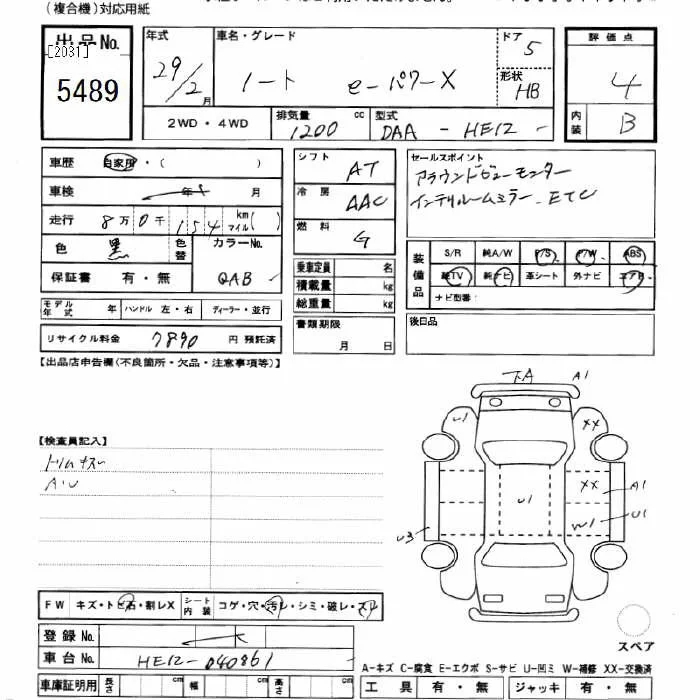 (複合機)対応用紙
出品No.
[2031]
5489
年式
29/2月
車名・グレード
ノート e-パワーX
ドア
5
形状
HB
評価点
4
内装
B
2WD・4WD
排気量
1200 cc
型式
DAA - HE12 -
車歴 自家用・( )
車検 年 月
走行 8万0千154 km マイル( )
色 黒 色替
カラーNo.
QAB
保証書 有・無
モデル年式 年 ハンドル 左・右 ディーラー・並行
リサイクル料金 7890 円 預託済
シフト
AT
冷房
AAC
燃料
G
乗車定員 名
積載量 kg
総重量 kg
書類期限
月 日
セールスポイント
アラウンドビューモニター
インテリルームミラー、ETC
装備品
S/R 純A/W P/S P/W ABS
純TV 純ナビ 革シート 外ナビ エアB
ナビ型番:
後日品
【出品店申告欄(不良箇所・欠品・注意事項等)】
【検査員記入】
トリムキズ
A.U
下A
A1
U1
XX
U1
XX
A1
W1
U1
U3
スペア
FW キズ・トビ石・割レX
シート内装 コゲ・穴・汚レ・シミ・破レ・スレ
登録No.
車台No. HE12-040861
車庫証明用 長さ cm 幅 cm 高さ cm
A-キズ C-腐食 E-エクボ S-サビ U-凹ミ W-補修 XX-交換済
工具 有・無 ジャッキ 有・無